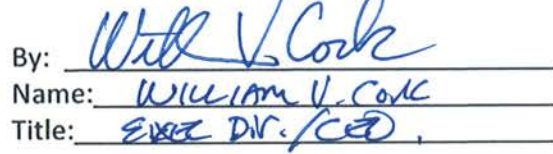 By: Will V. Cork
Name: WILLIAM V. CORK
Title: EXEC DIR./CEO.